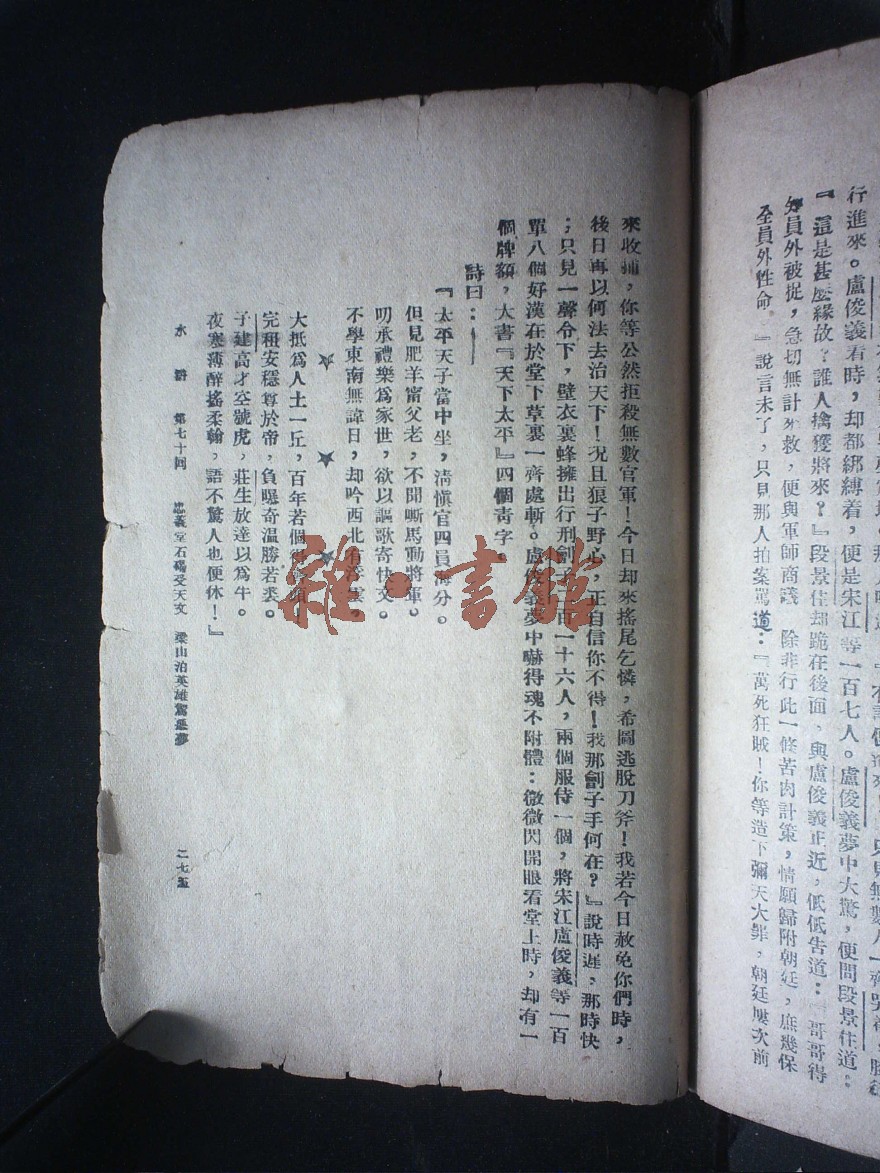 行進來。盧俊義看時，却都綁縛着，便是宋江等一百七人。盧俊義夢中大驚，便問段景住道：
『這是甚麽緣故？誰人擒獲將來？』段景住却跪在後面，與盧俊義正近，低低告道：『哥哥得
知員外被捉，急切無計來救，便與軍師商議 除非行此一條苦肉計策，情願歸附朝廷，庶幾保
全員外性命。』說言未了，只見那人拍案罵道：『萬死狂賊！你等造下彌天大罪，朝廷屢次前
來收捕，你等公然拒殺無數官軍！今日却來搖尾乞憐，希圖逃脫刀斧！我若今日赦免你們時，
後日再以何法去治天下！況且狼子野心，正自信你不得！我那劊子手何在？』說時遲，那時快
；只見一聲令下，壁衣裏蜂擁出行刑劊子二百一十六人，兩個服侍一個，將宋江盧俊義等一百
單八個好漢在於堂下草裏一齊處斬。盧俊義夢中嚇得魂不附體：微微閃開眼看堂上時，却有一
個牌額，大書『天下太平』四個靑字。
詩曰：
『太平天子當中坐，淸愼官四員海分。
但見肥羊甯父老，不聞嘶馬動將軍。
叨承禮樂爲家世，欲以謳歌寄快文。
不學東南無諱日，却吟西北有浮雲。
大抵爲人土一丘，百年若個得
完租安穩尊於帝，負曝奇温勝若裘。
子建高才空號虎，莊生放達以爲牛。
夜寒薄醉搖柔翰，語不驚人也便休！』
水滸 第七十回 忠義堂石碣受天文 梁山泊英雄驚惡夢 二七五
雜·書館